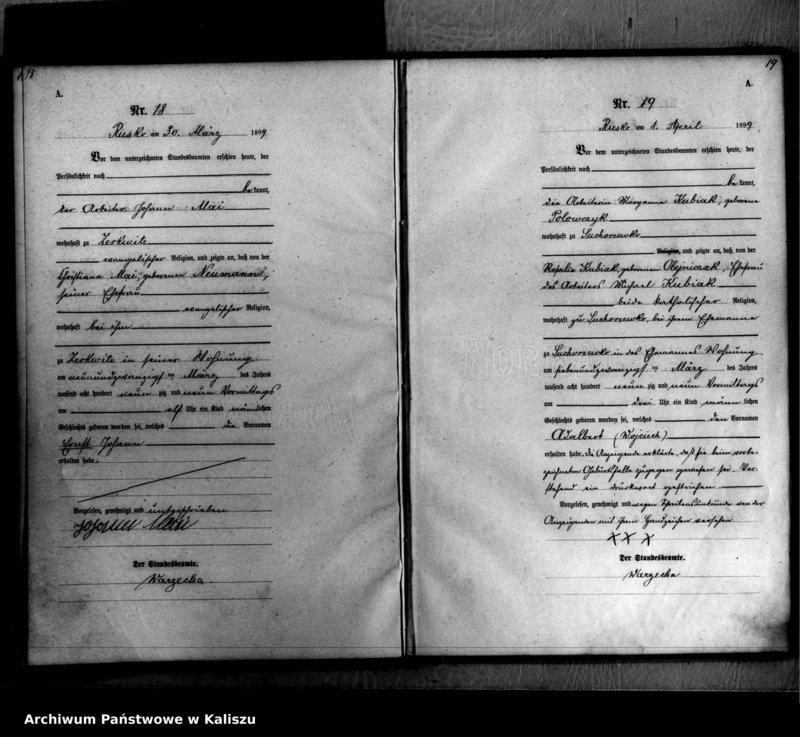 18
A.
Nr. 18
Rusko am 30. März 1899
Vor dem unterzeichneten Standesbeamten erschien heute, der
Persönlichkeit nach
be kannt,
der Arbeiter Johann Mai
wohnhaft zu Zerkwitz
evangelischer Religion, und zeigte an, daß von der
Christiana Mai, geborenen Neumann,
seiner Ehefrau
evangelischer Religion,
wohnhaft bei ihm
zu Zerkwitz in seiner Wohnung
am neunundzwanzigsten März des Jahres
tausend acht hundert neun zig und neun Vormittags
um elf Uhr ein Kind männlichen
Geschlechts geboren worden sei, welches die Vornamen
Ernst Johann
erhalten habe.
Vorgelesen, genehmigt und unterschrieben
Johann Mai
Der Standesbeamte.
Warzecha
19
A.
Nr. 19
Rusko am 1. April 1899
Vor dem unterzeichneten Standesbeamten erschien heute, der
Persönlichkeit nach
be kannt,
die Arbeiterin Maryanna Kubiak, geborene
Polowczyk
wohnhaft zu Suchorzewko
Religion, und zeigte an, daß von der
Rosalie Kubiak, geborenen Olejniczak, Ehefrau
des Arbeiters Michael Kubiak
beide katholischer Religion,
wohnhaft zu Suchorzewko, bei ihrem Ehemanne
zu Suchorzewko in des Ehemannes Wohnung
am siebenundzwanzigsten März des Jahres
tausend acht hundert neun zig und neun Vormittags
um drei Uhr ein Kind männ lichen
Geschlechts geboren worden sei, welches den Vornamen
Adalbert (Wojciech)
erhalten habe. Die Anzeigende erklärte, daß sie beim vorbe-
zeichneten Geburtsfalle zugegen gewesen sei. Vor-
stehend ein Druckwort gestrichen.
Vorgelesen, genehmigt und wegen Schreibensunkunde von der
Anzeigenden mit ihrem Handzeichen versehen
XXX
Der Standesbeamte.
Warzecha
Archiwum Państwowe w Kaliszu